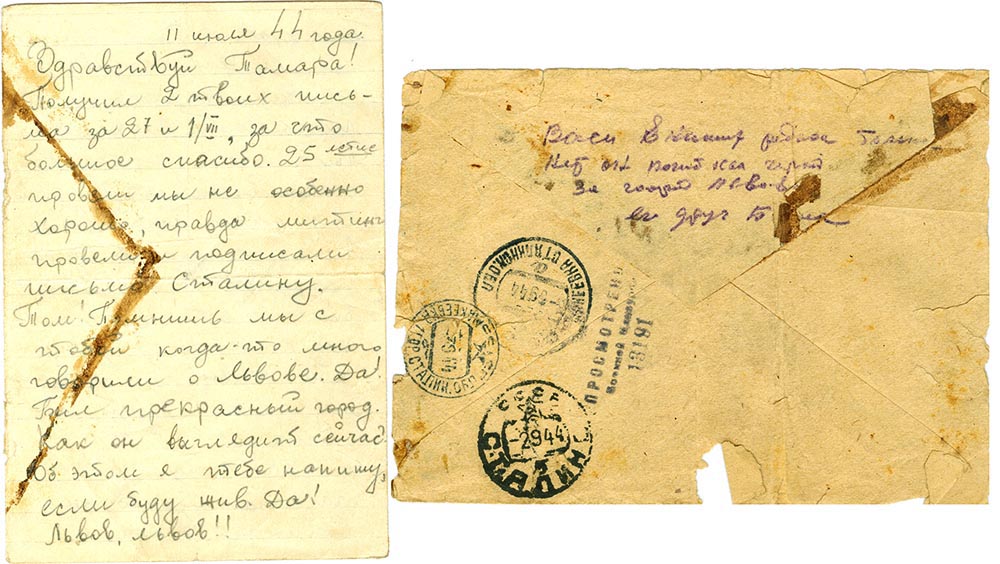 11 июля 44 года.
Здравствуй Тамара!
Получил 2 твоих пись-
ма за 27 и 1/VII, за что
большое спасибо. 25 летие
провели мы не особенно
хорошо, правда митинг
провели и подписали
письмо Сталину.
Том! Помнишь мы с
тобой когда-то много
говорили о Львове. Да!
Был прекрасный город.
Как он выглядит сейчас
Об этом я тебе напишу,
если буду жив. Да!
Львов, Львов!!
Васи
Нет он погиб как герой
За город Львов
его друг
ПРОСМОТРЕНО
Военной Цензурой
18191
СССР
-2944
СТАЛИН